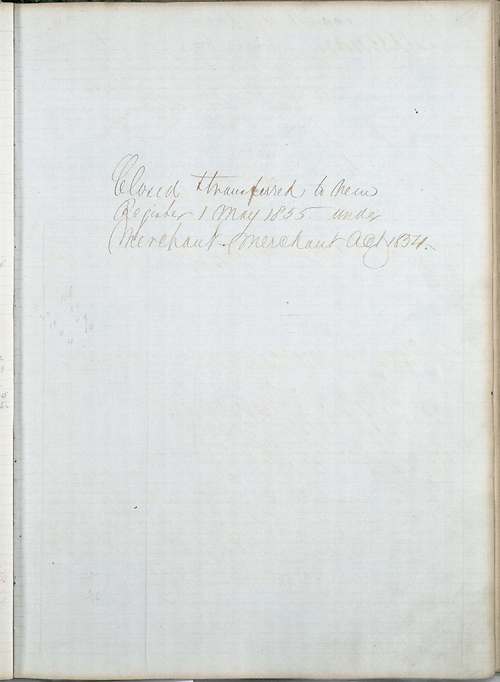 Closed & transferred to New
Register 1 May 1855 under
Merchant Merchant Act 1854.